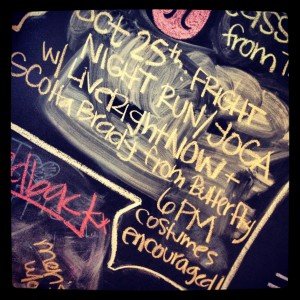 Oct 25th: FRIGHT
NIGHT RUN/YOGA
w/ LiveRightNOW +
Scotia Brady from Butterfly
6 PM
costumes
encouraged!
from